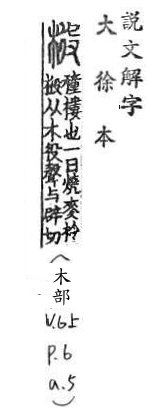 説文解字
大徐本
㭒
穜樓也一曰燒麥柃
㭒从木役聲与辟切
(木部
V.6上
P.6
a.5)